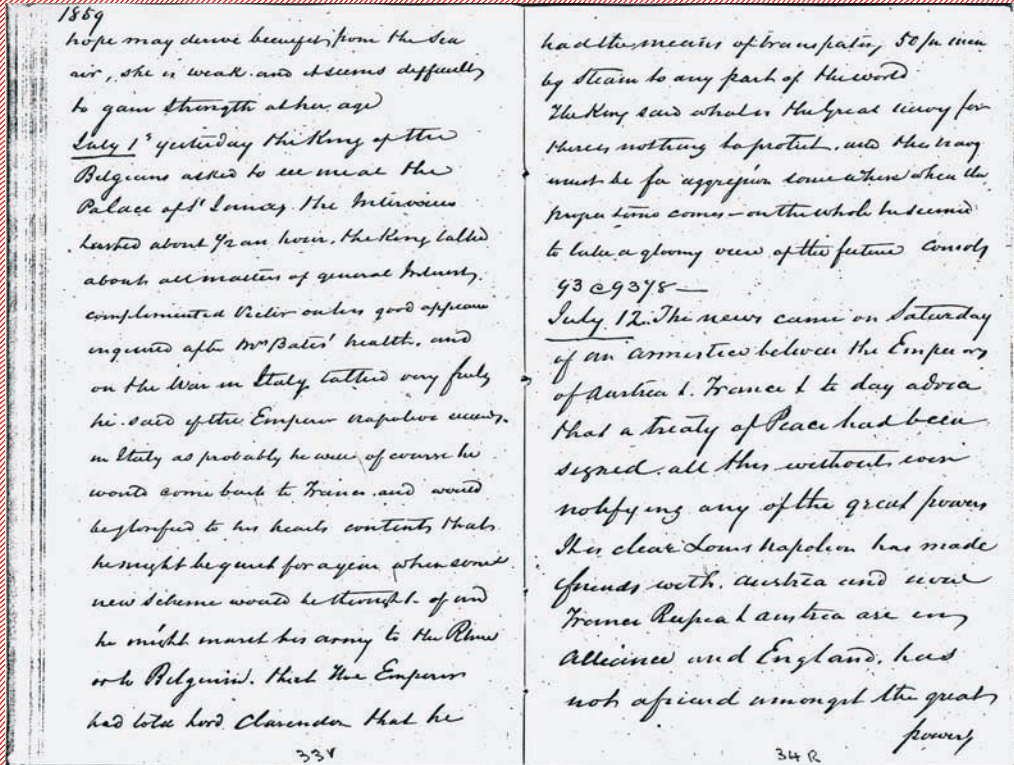 1859
hope may derive benefit from the sea
air, she is weak and it seems difficulty
to gain strength at her age
July 1s yesterday the King of the
Belgians asked to see me at the
Palace of St James, the Interview
lasted about 1/2 an hour, the King talked
about all matters of general Interest,
complimented Victor on his good appeara
inquired after Mrs Bates' health, and
on the War in Italy talked very freely
he said if the Emperor napoleon
in Italy as probably he will of course he
would come back to France and would
be glorified to his hearts contents that
he might be quiet for a year when some
new scheme would be thought of and
he might march his army to the Rhine
or to Belgium. that the Emperor
had told Lord Clarendon that he
33V
had the means of transpating 50/m men
by steam to any part of the world
The King said what is the Great navy for
there is nothing to protect, and the navy
must be for aggression some where when the
proper time comes - on the whole he seemed
to take a gloomy view of the future Consols
93 @ 93 7/8 —
July 12. The news came on Saturday
of an armistice between the Emperors
of Austria & France & to day advice
that a treaty of Peace had been
signed, all this without even
notifying any of the great powers
It is clear Louis Napoleon has made
friends with Austria and now
France Russia & austria are in
Alliance and England has
not a friend amongst the great
powers
34R